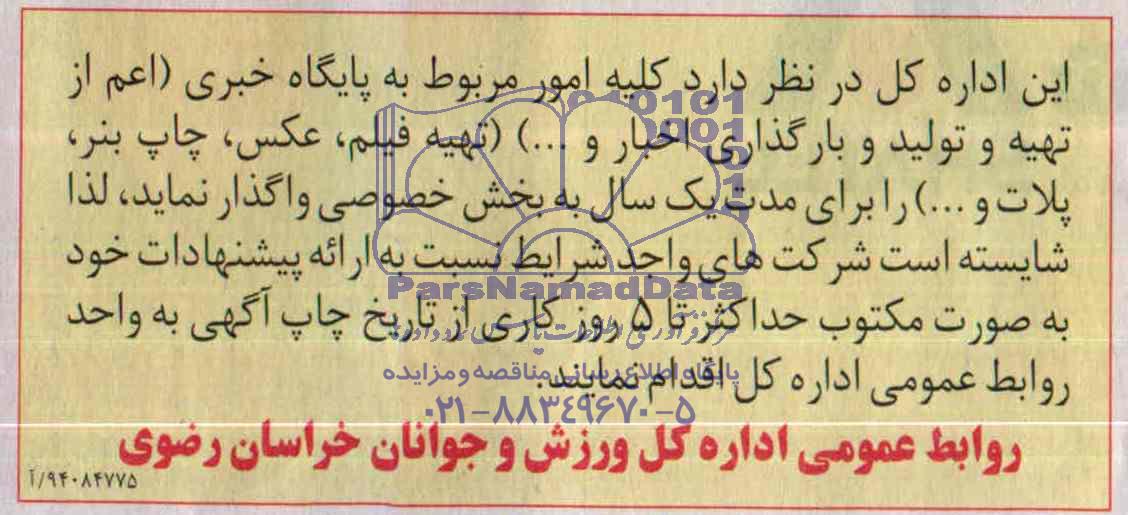 این اداره کل در نظر دارد کلیه امور مربوط به پایگاه خبری (اعم از
تهیه و تولید و بارگذاری اخبار و ...) (تهیه فیلم، عکس، چاپ بنر،
پلات و ...) را برای مدت یک سال به بخش خصوصی واگذار نماید، لذا
شایسته است شرکت های واجد شرایط نسبت به ارائه پیشنهادات خود
به صورت مکتوب حداکثر تا ۵ روز کاری از تاریخ چاپ آگهی به واحد
روابط عمومی اداره کل اقدام نمایند.
روابط عمومی اداره کل ورزش و جوانان خراسان رضوی
۹۴۰۸۴۷۷۵/آ
010101
0001
ParsNamadData
پایگاه اطلاع رسانی مناقصه و مزایده
۰۲۱-۸۸۳۴۹۶۷۰-۵